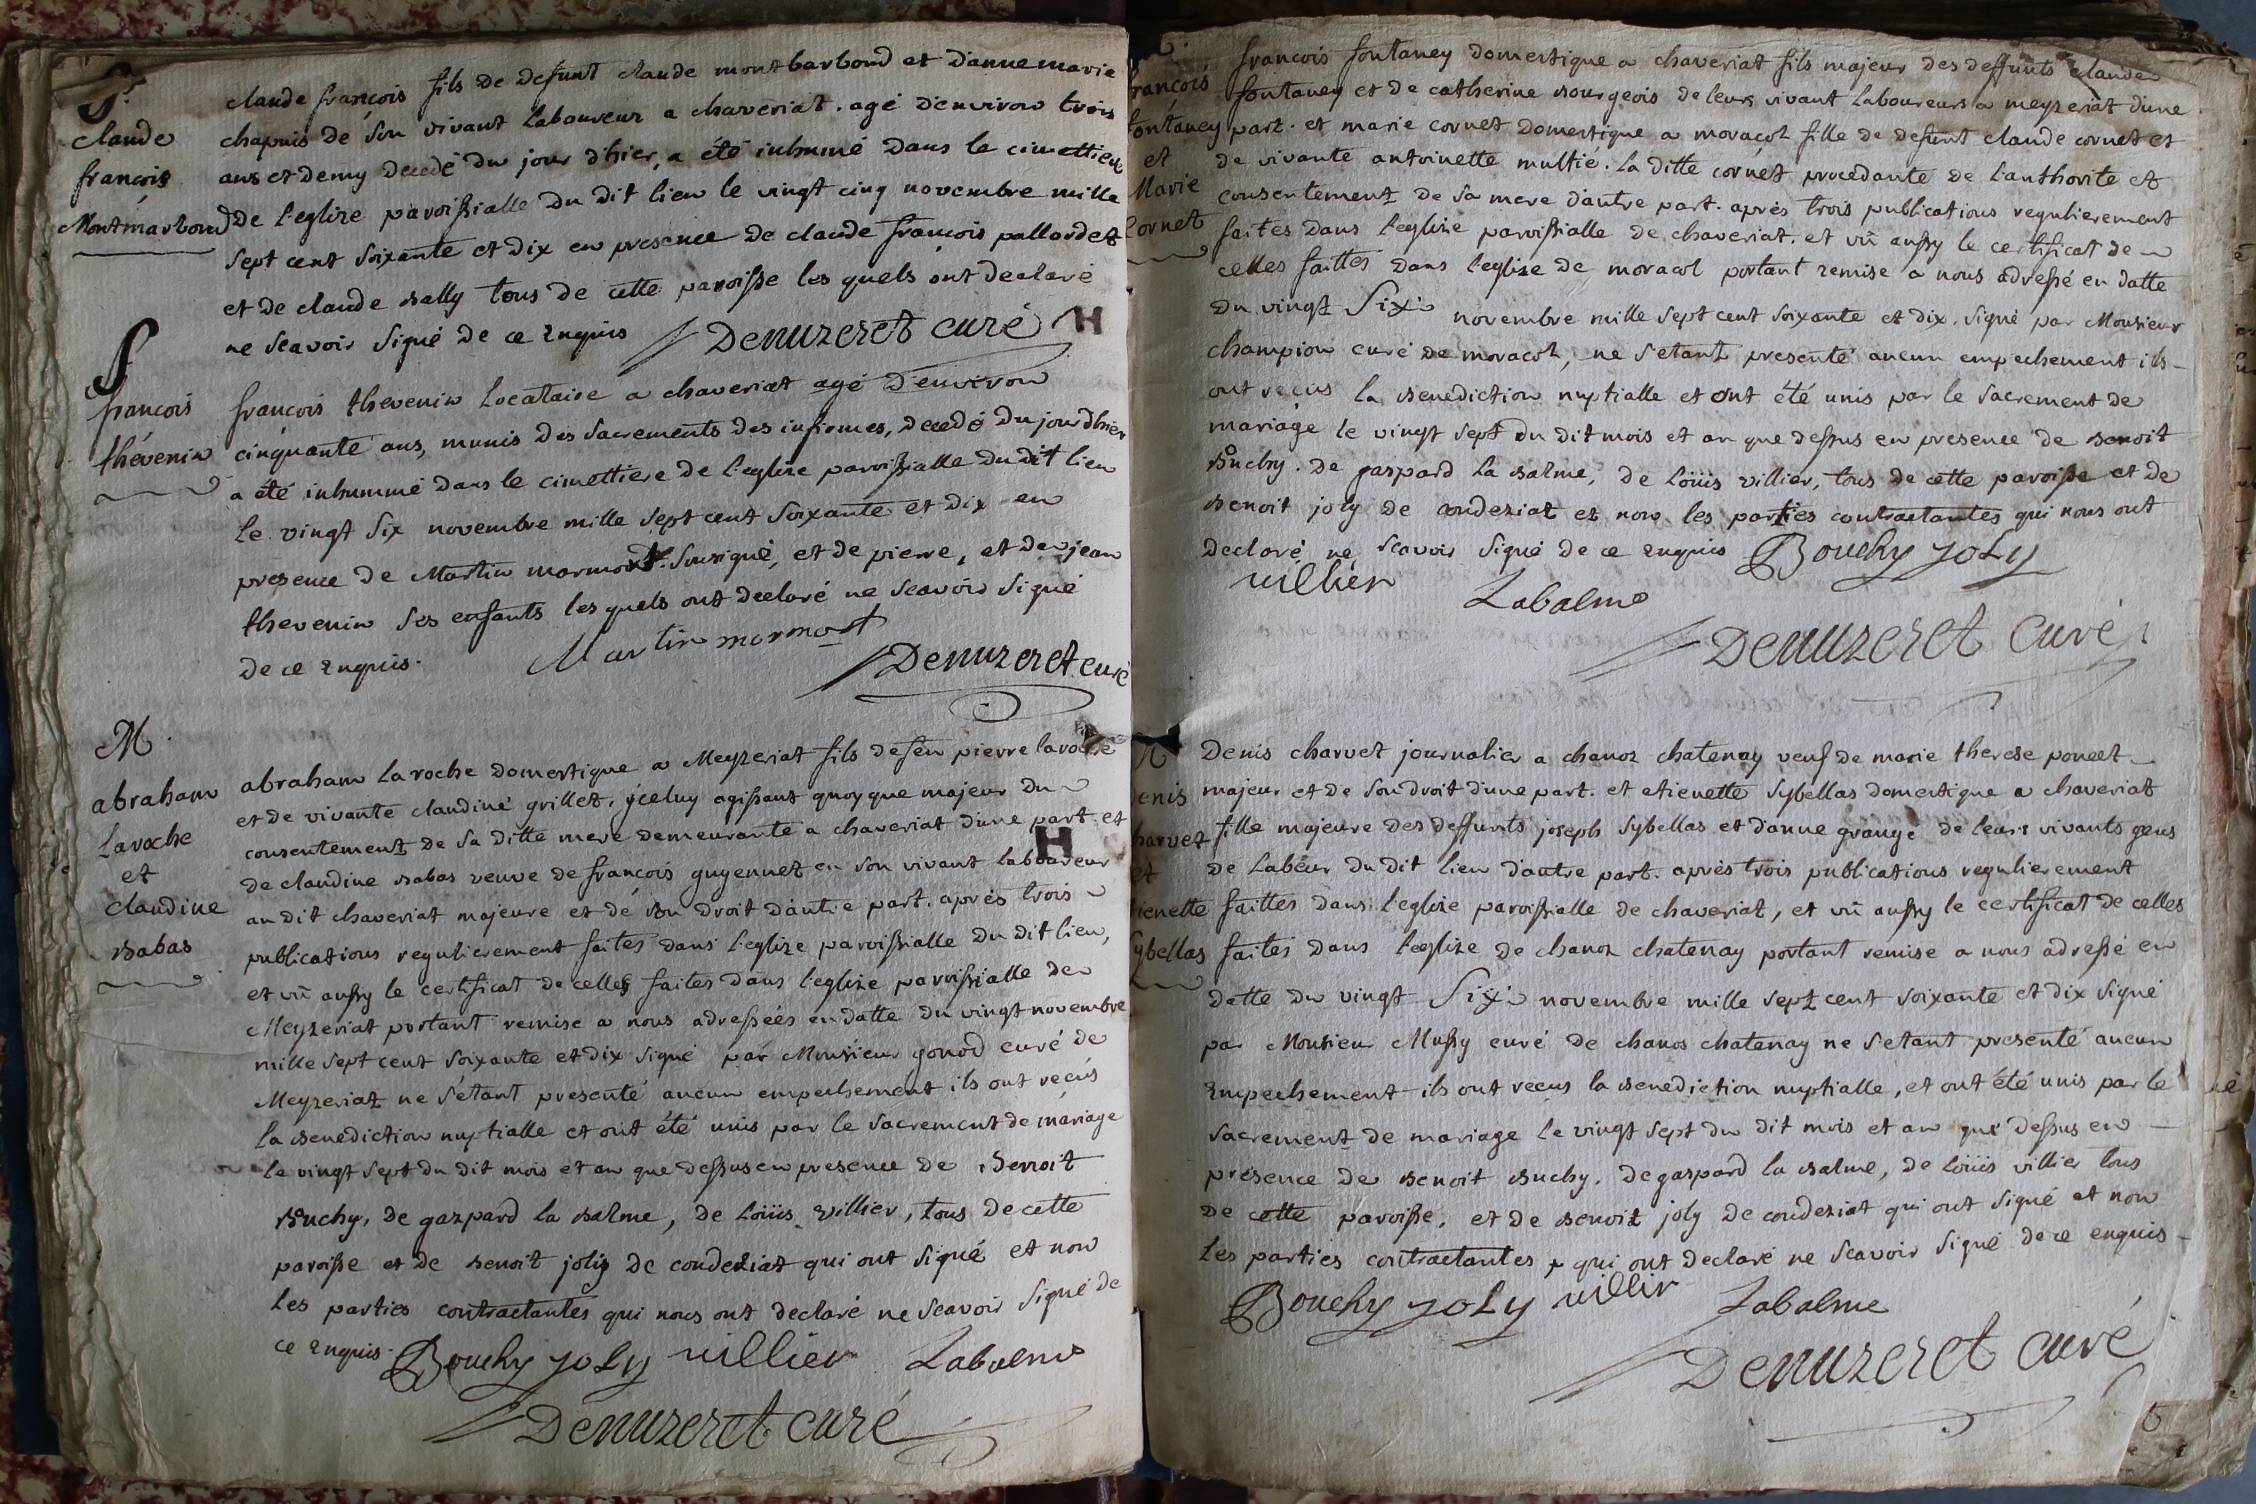 S.
claude
françois
Montmarbond
claude françois fils de defunt claude montbarbond et d'anne marie
chapuis de son vivant laboureur a chaveriat. agé d'environ trois
ans et demy decedé du jour d'hier, a été inhumé dans le cimettiere
de l'eglize paroissialle du dit lieu le vingt cinq novembre mille
sept cent soixante et dix en presence de claude françois pallordet
et de claude bally tous de cette paroisse les quels ont declaré
ne scavoir signé de ce enquis Denuzeret curé
S
françois
thévenin
françois thevenin locataire a chaveriat agé d'environ
cinquante ans, munis des sacrements des infirmes, decedé du jour d'hier
a été inhummé dans le cimettiere de l'eglize paroissialle du dit lieu
le vingt six novembre mille sept cent soixante et dix en
presence de Martin mormont sousigné, et de pierre, et de jean
thevenin ses enfants les quels ont declaré ne scavoir signé
de ce enquis. Martin mormont
Denuzeret curé
M.
abraham
Laroche
et
claudine
babas
abraham laroche domestique a Meyzeriat fils de feu pierre laroche
et de vivante claudine grillet, yceluy agissant quoyque majeur du
consentement de sa ditte mere demeurante a chaveriat d'une part. et
de claudine babas veuve de françois guyennet en son vivant laboureur
au dit chaveriat majeure et de son droit d'autre part. aprés trois
publications regulierement faites dans l'eglize paroissialle du dit lieu,
et vû aussy le certificat de celles faites dans l'eglize paroissialle de
Meyzeriat portant remise a nous adressées en datte du vingt novembre
mille sept cent soixante et dix signé par Monsieur gonod curé de
Meyzeriat ne s'étant presenté aucun empechement ils ont recus
la benediction nuptialle et ont été unis par le sacrement de mariage
le vingt sept du dit mois et an que dessus en presence de Benoit
Buchy, de gaspard la balme, de Loüis villier, tous de cette
paroisse et de benoit joly de condeziat qui ont signé et non
les parties contractantes qui nous ont declaré ne scavoir signé de
ce enquis. Bouchy joly villier Labalme
Denuzeret curé
françois
fontaney
et
Marie
Cornet
françois fontaney domestique a chaveriat fils majeur des deffunts claude
fontaney et de catherine bourgeois de leurs vivant laboureurs a meyzeriat d'une
part. et marie cornet domestique a moracol fille de defunt claude cornet et
de vivante antoinette multié. la ditte cornet procedante de l'authorite et
consentement de sa mere d'autre part. aprés trois publications regulierement
faites dans l'eglize paroissialle de chaveriat. et vû aussy le certificat de
celles faittes dans l'eglize de moracol portant remise a nous adressé en datte
du vingt six novembre mille sept cent soixante et dix. signé par Monsieur
champion curé de moracol, ne s'etant presenté aucun empechement ils
ont recus la benediction nuptialle et ont été unis par le sacrement de
mariage le vingt sept du dit mois et an que dessus en presence de benoit
Buchy. de gaspard la balme, de Loüis villier, tous de cette paroisse et de
benoit joly de condeziat et non les parties contractantes qui nous ont
declaré ne scavoir signé de ce enquis Bouchy joly
villier Labalme
Denuzeret curé
M
denis
charvet
et
etienette
sybellas
Denis charvet journalier a chanoz chatenay veuf de marie therese poncet
majeur et de son droit d'une part. et etienette sybellas domestique a chaveriat
fille majeure des deffunts joseph sybellas et d'anne grange de leurs vivants gens
de labeur du dit lieu d'autre part. aprés trois publications regulierement
faittes dans l'eglize paroissialle de chaveriat, et vû aussy le certificat de celles
faites dans l'eglize de chanoz chatenay portant remise a nous adressé en
datte du vingt six novembre mille sept cent soixante et dix signé
par Monsieur Mussy curé de chanos chatenay ne s'etant presenté aucun
empechement ils ont recus la benediction nuptialle, et ont été unis par le
sacrement de mariage le vingt sept du dit mois et an que dessus en
présence de benoit buchy. de gaspard la balme, de loüis villier tous
de cette paroisse, et de benoit joly de condeziat qui ont signé et non
les parties contractantes qui ont declaré ne scavoir signé de ce enquis
Bouchy joly villier Labalme
Denuzeret curé